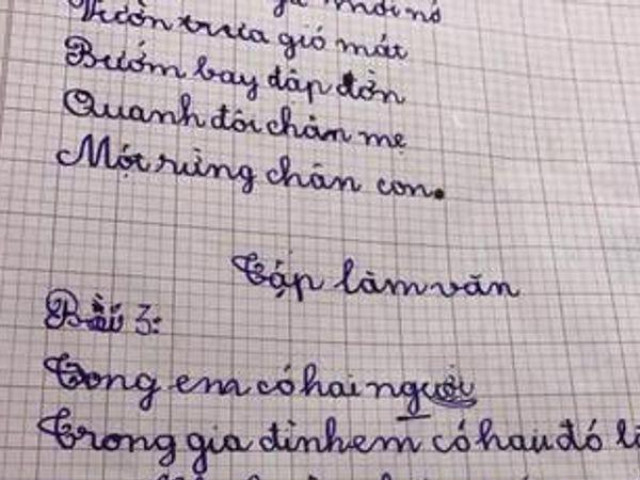 mới nở
Vườn trưa gió mát
Bướm bay dập dờn
Quanh đôi chân mẹ
Một rừng chân con.
Tập làm văn
Bài 3:
Trong em có hai người
Trong gia đình em có hai đó